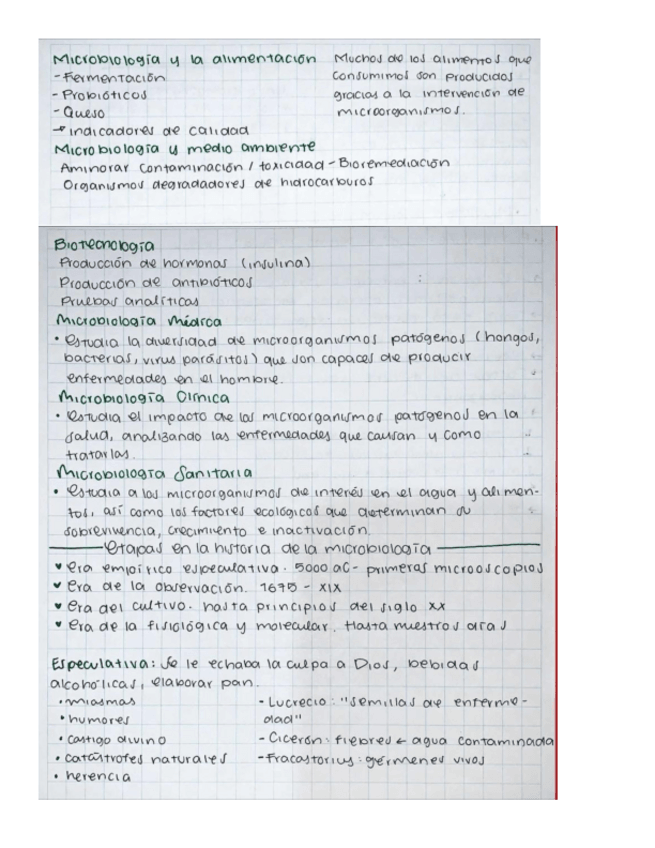 Microbiología y la alimentación
-Fermentación
-Probióticos
-Queso
→ indicadores de calidad
Muchos de los alimentos que
consumimos son producidos
gracias a la intervención de
microorganismos.
Microbiología y medio ambiente
Aminorar contaminación / toxicidad - Bioremediación
Organismos degradadores de hidrocarburos
Biotecnología
Producción de hormonas (insulina)
Producción de antibióticos
Pruebas analíticas
Microbiología Médica
• estudia la diversidad de microorganismos patógenos (hongos,
bacterias, virus parásitos) que son capaces de producir
enfermedades en el hombre.
Microbiología Clínica
• estudia el impacto de los microorganismos patogenos en la
salud, analizando las enfermedades que causan y como
tratarlas.
Microbiología Sanitaria
• estudia a los microorganismos de interés en el agua y alimen-
tos, así como los factores ecológicos que determinan su
sobrevivencia, crecimiento e inactivación.
etapas en la historia de la microbiología
♥ era empírico especulativa. 5000 aC - primeros microoscopios
♥ era de la observación. 1675 - XIX
♥ era del cultivo. hasta principios del siglo xx
♥ era de la fisiológica y molecular. Hasta nuestros días
Especulativa: se le echaba la culpa a Dios, bebidas
alcohólicas, elaborar pan.
• miasmas
• humores
• castigo divino
• catástrofes naturales
• herencia
- Lucrecio: "semillas de enferme-
dad"
- Cicerón: fiebres ← agua contaminada
- Fracastorius: gérmenes vivos